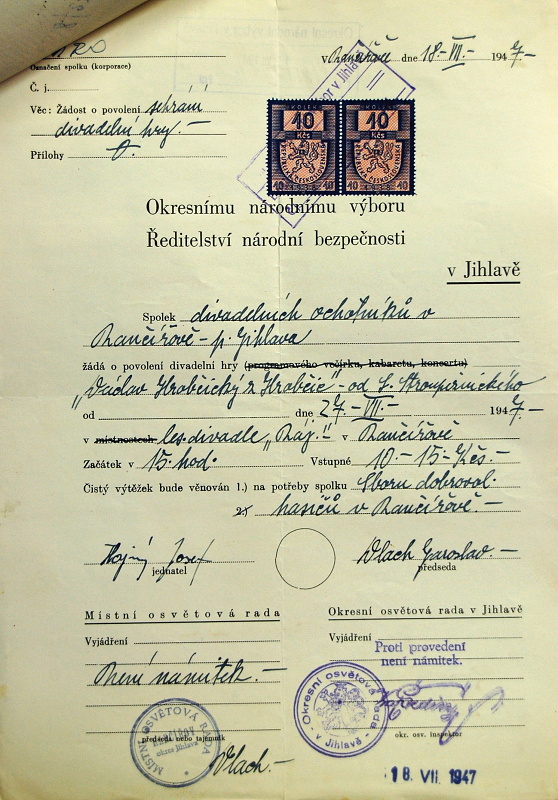 v Rančířově dne 18-VII.- 1947-
Označení spolku (korporace)
Č. j.
Věc: Žádost o povolení sehrání
divadelní hry.-
Přílohy
KOLEK KOLEK
10 10
Kčs Kčs
REPUBLIKA ČESKOSLOVENSKÁ REPUBLIKA ČESKOSLOVENSKÁ
10 10 10 10
Okresnímu národnímu výboru
Ředitelství národní bezpečnosti
v Jihlavě
Spolek divadelních ochotníků v
Rančířově - p. Jihlava
žádá o povolení divadelní hry (programového večírku, kabaretu, koncertu)
„Václav Hrobčický z Hrobčic" - od L. Stroupežnického
od dne 27.-VII.- 1947-
v místnostech les. divadle „Ráj.-" v Rančířově
Začátek v 15 hod. Vstupné 10.- 15.- Kčs.-
Čistý výtěžek bude věnován 1.) na potřeby spolku Sboru dobrovol.
2. hasičů v Rančířově.-
Hojný Josef Vlach Jaroslav.-
jednatel předseda
Místní osvětová rada Okresní osvětová rada v Jihlavě
Vyjádření Vyjádření
Proti provedení
není námitek.
Není námitek.-
Okresní osvětová rada
v Jihlavě
MÍSTNÍ OSVĚTOVÁ RADA
okres Jihlava
předseda nebo tajemník okr. osv. inspektor
Vlach.-
18. VII 1947